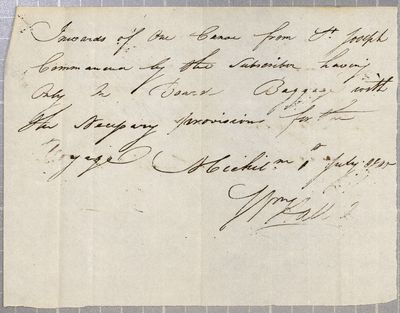 Inwards of One Canoe from St. Joseph
Commanded by the Subscriber having
Only On Board Baggage with
the Necessary provisions for the
Voyage Michilm. 1st July
Wm Hall